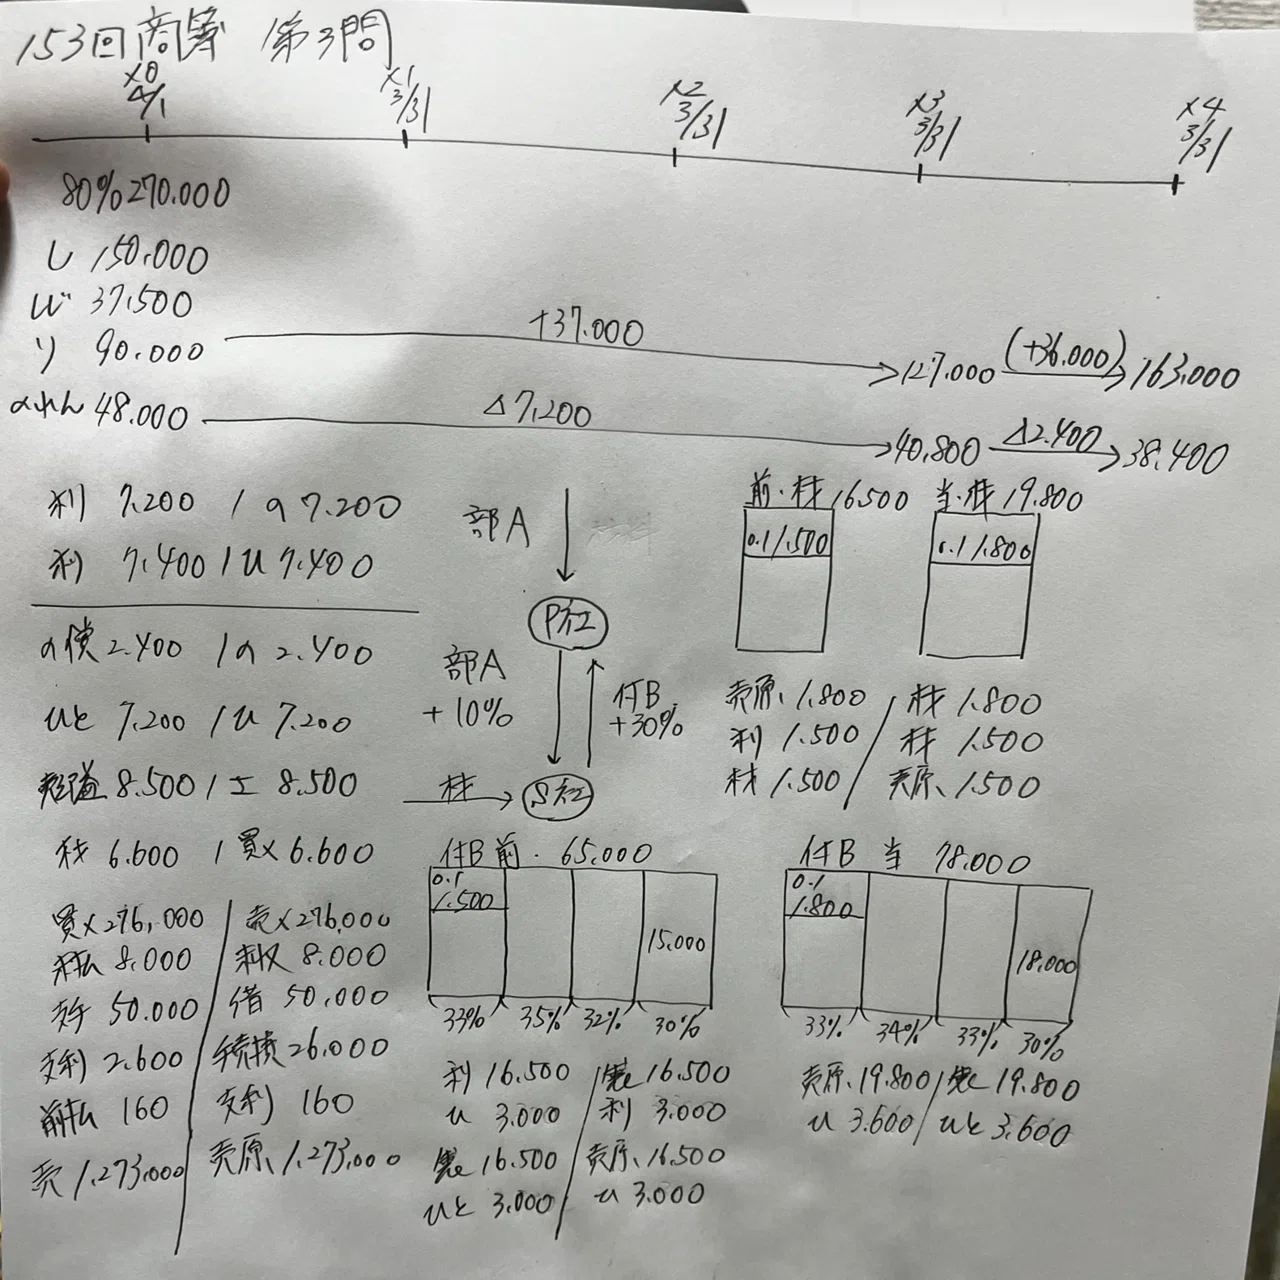 153回商簿 第3問
×0 4/1
×1 3/31
×2 3/31
×3 3/31
×4 3/31
80% 270.000
し 150.000
しば 37.500
り 90.000 +37.000 127.000 (+36.000) 163.000
のれん 48.000 Δ7.200 40.800 Δ2.400 38.400
利 7.200 / の 7.200
利 7.400 / ひ 7.400
の償 2.400 / の 2.400
ひと 7.200 / ひ 7.200
8.500 / 土 8.500
材 6.600 / 買× 6.600
買× 276,000 / 売× 276,000
未払 8.000 / 未収 8.000
支手 50.000 / 借 50,000
支利 2.600 / 手続損 26,000
前払 160 / 支利 160
売 1,273,000 / 売原、1,273,000
部A
P社
部A +10%
付B +30%
材
S社
前・材 16.500
0.1 1.500
当・材 19.800
0.1 1.800
売原、1.800 / 材 1.800
利 1.500 / 材 1.500
材 1.500 / 売原、1.500
付B 前・65,000
0.1 1.500
15.000
33% 35% 32% 30%
利 16.500 / 製 16.500
ひ 3.000 / 利 3.000
製 16.500 / 売原、16.500
ひと 3.000 / ひ 3.000
付B 当 78.000
0.1 1.800
18.000
33% 34% 33% 30%
売原、19.800 / 製 19.800
ひ 3.600 / ひと 3.600